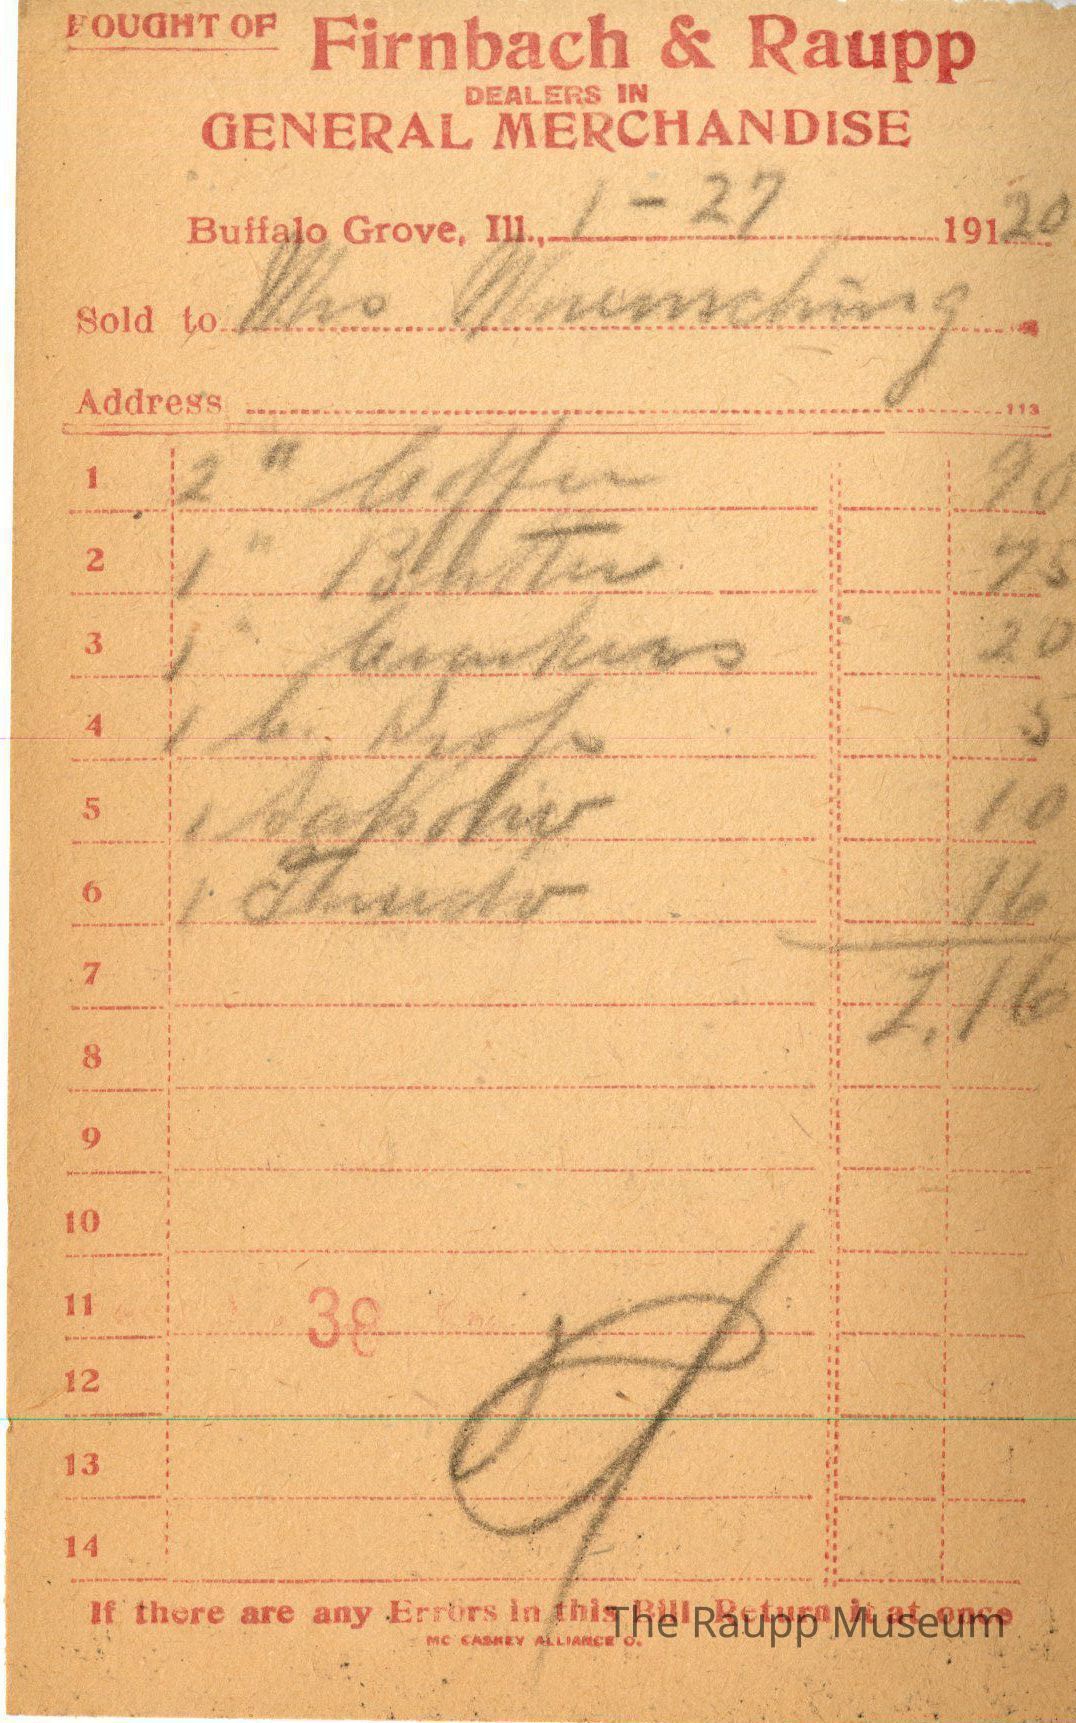 BOUGHT OF Firnbach & Raupp
DEALERS IN
GENERAL MERCHANDISE
Buffalo Grove, Ill., 1-27 191 20
Sold to Mrs
Address 113
1 2 " Coffee 90
2 1 " Butter 75
3 1 " Crackers 20
4 1 C. Drops 5
5 1 Sapolio 10
6 1 16
7 2.16
8
9
10
11 38
12
13
14
If there are any Errors in this Bill Return it at once
MC CASKEY ALLIANCE O.
The Raupp Museum